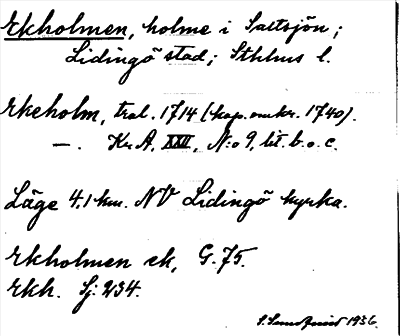 Ekholmen, holme i Saltsjön;
Lidingö stad; Sthlms l.
Ekeholm, tral. 1714 (kop. omkr. 1740).
—. Kr A, XXII, N:o 9, lit. b. o. c.
Läge 4.1 km. NV Lidingö kyrka.
Ekholmen ek, G. 75.
Ekh. Sj: 234.
1936.